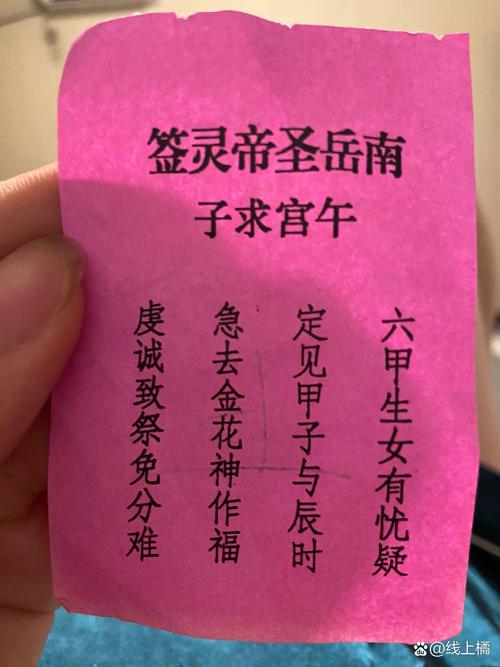 南岳圣帝灵签
午宫求子
六甲生女有忧疑
定见甲子与辰时
急去金花神作福
虔诚致祭免分难
@线上橘